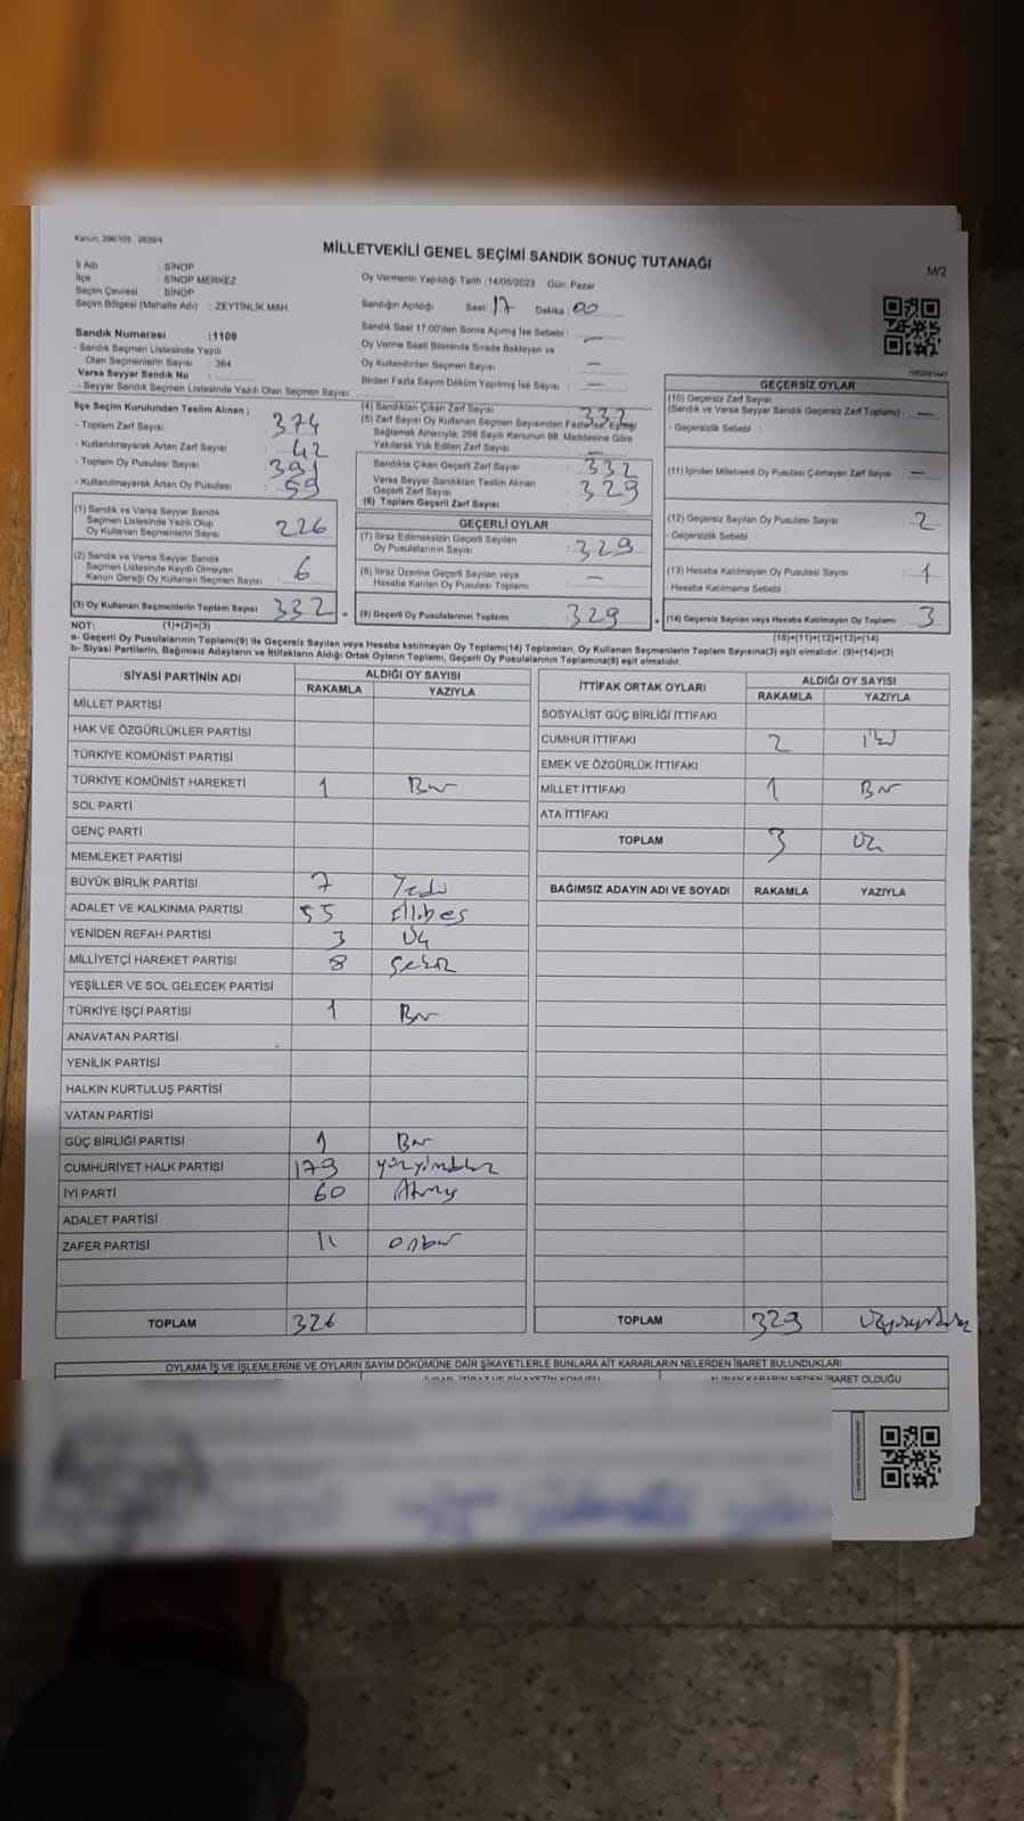 MİLLETVEKİLİ GENEL SEÇİMİ SANDIK SONUÇ TUTANAĞI
M/2
İl Adı : SİNOP
İlçe : SİNOP MERKEZ
Seçim Çevresi : SİNOP
Seçim Bölgesi (Mahalle Adı) : ZEYTİNLİK MAH.
Oy Vermenin Yapıldığı Tarih :14/05/2023 Gün: Pazar
Sandığın Açıldığı Saat : 17 Dakika : 00
Sandık Numarası :1109
- Sandık Seçmen Listesinde Yazılı
Olan Seçmenlerin Sayısı : 364
Varsa Seyyar Sandık No :
- Seyyar Sandık Seçmen Listesinde Yazılı Olan Seçmen Sayısı:
Sandık Saat 17.00'den Sonra Açılmış İse Sebebi : —
Oy Verme Saati Bitiminde Sırada Bekleyen ve
Oy Kullandırılan Seçmen Sayısı : —
Birden Fazla Sayım Döküm Yapılmış İse Sayısı : —
İlçe Seçim Kurulundan Teslim Alınan ;
- Toplam Zarf Sayısı : 374
- Kullanılmayarak Artan Zarf Sayısı : 42
- Toplam Oy Pusulası Sayısı : 391
- Kullanılmayarak Artan Oy Pusulası : 59
(1) Sandık ve Varsa Seyyar Sandık
Seçmen Listesinde Yazılı Olup
Oy Kullanan Seçmenlerin Sayısı : 226
(2) Sandık ve Varsa Seyyar Sandık
Seçmen Listesinde Kayıtlı Olmayan
Kanun Gereği Oy Kullanan Seçmen Sayısı : 6
(3) Oy Kullanan Seçmenlerin Toplam Sayısı : 332
(4) Sandıktan Çıkan Zarf Sayısı : 332
(5) Zarf Sayısı Oy Kullanan Seçmen Sayısından Fazla İse, Eşitliği
Sağlamak Amacıyla; 298 Sayılı Kanunun 98. Maddesine Göre
Yakılarak Yok Edilen Zarf Sayısı : —
Sandıkta Çıkan Geçerli Zarf Sayısı : 332
Varsa Seyyar Sandıktan Teslim Alınan
Geçerli Zarf Sayısı : 329
(6) Toplam Geçerli Zarf Sayısı
GEÇERLİ OYLAR
(7) İtiraz Edilmeksizin Geçerli Sayılan
Oy Pusulalarının Sayısı : 329
(8) İtiraz Üzerine Geçerli Sayılan veya
Hesaba Katılan Oy Pusulası Toplamı : —
(9) Geçerli Oy Pusulalarının Toplamı : 329
GEÇERSİZ OYLAR
(10) Geçersiz Zarf Sayısı
(Sandık ve Varsa Seyyar Sandık Geçersiz Zarf Toplamı) : —
- Geçersizlik Sebebi :
(11) İçinden Milletvekili Oy Pusulası Çıkmayan Zarf Sayısı : —
(12) Geçersiz Sayılan Oy Pusulası Sayısı : 2
- Geçersizlik Sebebi
(13) Hesaba Katılmayan Oy Pusulası Sayısı : 1
- Hesaba Katılmama Sebebi :
(14) Geçersiz Sayılan veya Hesaba Katılmayan Oy Toplamı : 3
NOT: (1)+(2)=(3) (10)+(11)+(12)+(13)=(14)
a- Geçerli Oy Pusulalarının Toplamı(9) ile Geçersiz Sayılan veya Hesaba katılmayan Oy Toplamı(14) Toplamları, Oy Kullanan Seçmenlerin Toplam Sayısına(3) eşit olmalıdır. (9)+(14)=(3)
b- Siyasi Partilerin, Bağımsız Adayların ve İttifakların Aldığı Ortak Oyların Toplamı, Geçerli Oy Pusulalarının Toplamına(9) eşit olmalıdır.
SİYASİ PARTİNİN ADI ALDIĞI OY SAYISI
RAKAMLA YAZIYLA
MİLLET PARTİSİ
HAK VE ÖZGÜRLÜKLER PARTİSİ
TÜRKİYE KOMÜNİST PARTİSİ
TÜRKİYE KOMÜNİST HAREKETİ 1 Bir
SOL PARTİ
GENÇ PARTİ
MEMLEKET PARTİSİ
BÜYÜK BİRLİK PARTİSİ 7 Yedi
ADALET VE KALKINMA PARTİSİ 55 Ellibeş
YENİDEN REFAH PARTİSİ 3 Üç
MİLLİYETÇİ HAREKET PARTİSİ 8 Sekiz
YEŞİLLER VE SOL GELECEK PARTİSİ
TÜRKİYE İŞÇİ PARTİSİ 1 Bir
ANAVATAN PARTİSİ
YENİLİK PARTİSİ
HALKIN KURTULUŞ PARTİSİ
VATAN PARTİSİ
GÜÇ BİRLİĞİ PARTİSİ 1 Bir
CUMHURİYET HALK PARTİSİ 179
İYİ PARTİ 60 Altmış
ADALET PARTİSİ
ZAFER PARTİSİ 11 Onbir
TOPLAM 326
İTTİFAK ORTAK OYLARI ALDIĞI OY SAYISI
RAKAMLA YAZIYLA
SOSYALİST GÜÇ BİRLİĞİ İTTİFAKI
CUMHUR İTTİFAKI 2 İki
EMEK VE ÖZGÜRLÜK İTTİFAKI
MİLLET İTTİFAKI 1 Bir
ATA İTTİFAKI
TOPLAM 3 Üç
BAĞIMSIZ ADAYIN ADI VE SOYADI RAKAMLA YAZIYLA
TOPLAM 329
OYLAMA İŞ VE İŞLEMLERİNE VE OYLARIN SAYIM DÖKÜMÜNE DAİR ŞİKAYETLERLE BUNLARA AİT KARARLARIN NELERDEN İBARET BULUNDUKLARI